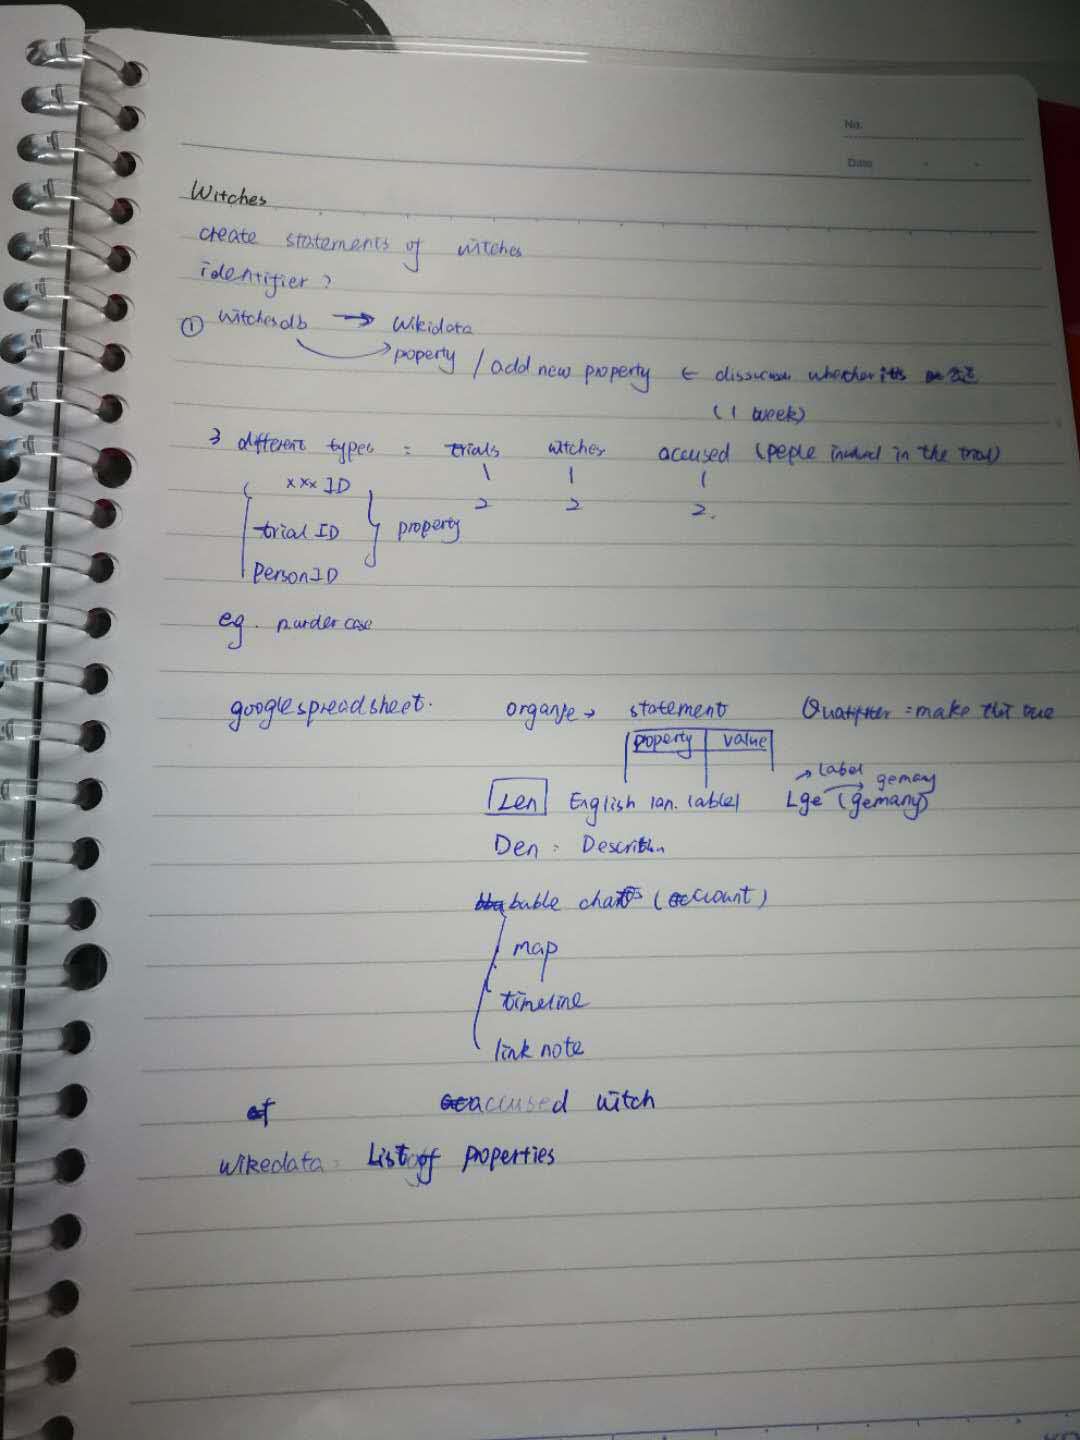 No.
Date
Witches
create statements of witches
identifier?
① witchesdb → Wikidata
poperty / add new property ← whether it's
(1 week)
3 different types: trials witches accused (peple in the trial)
xxx ID
2 2 2.
trial ID property
Person ID
eg. murder case
google spreadsheet. organze → statement = make this true
property value
→ label gemany
Len English lan. lable) Lge (gemany)
Den:
buble charts (account)
map
timeline
link note
accused witch
wikedata: List of properties